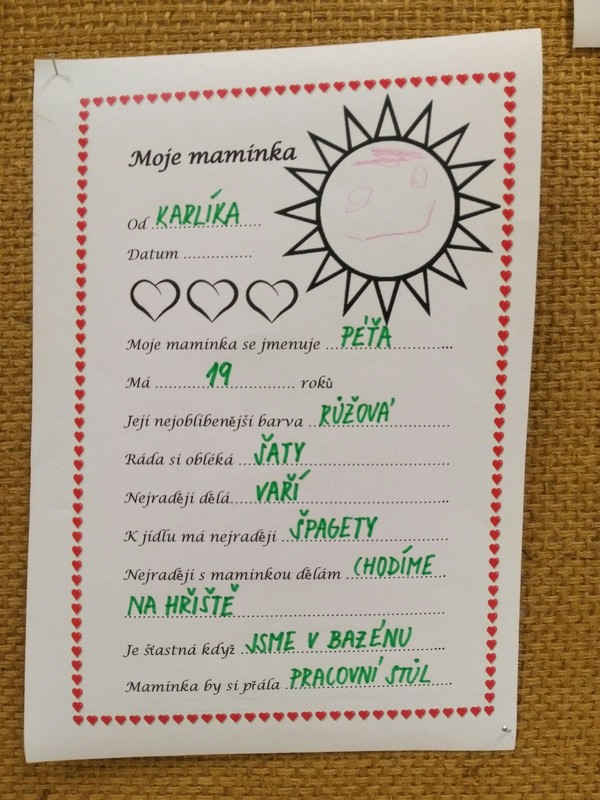 Moje maminka
Od KARLÍKA
Datum ...............
Moje maminka se jmenuje ... PÉŤA ...
Má ... 19 ... roků
Její nejoblíbenější barva ... RŮŽOVÁ ...
Ráda si obléká ... ŠATY ...
Nejraději dělá... VAŘÍ ...
K jídlu má nejraději ... ŠPAGETY ...
Nejraději s maminkou dělám ... CHODÍME
NA HŘIŠTĚ ...
Je šťastná když ... JSME V BAZÉNU ...
Maminka by si přála ... PRACOVNÍ STŮL ...